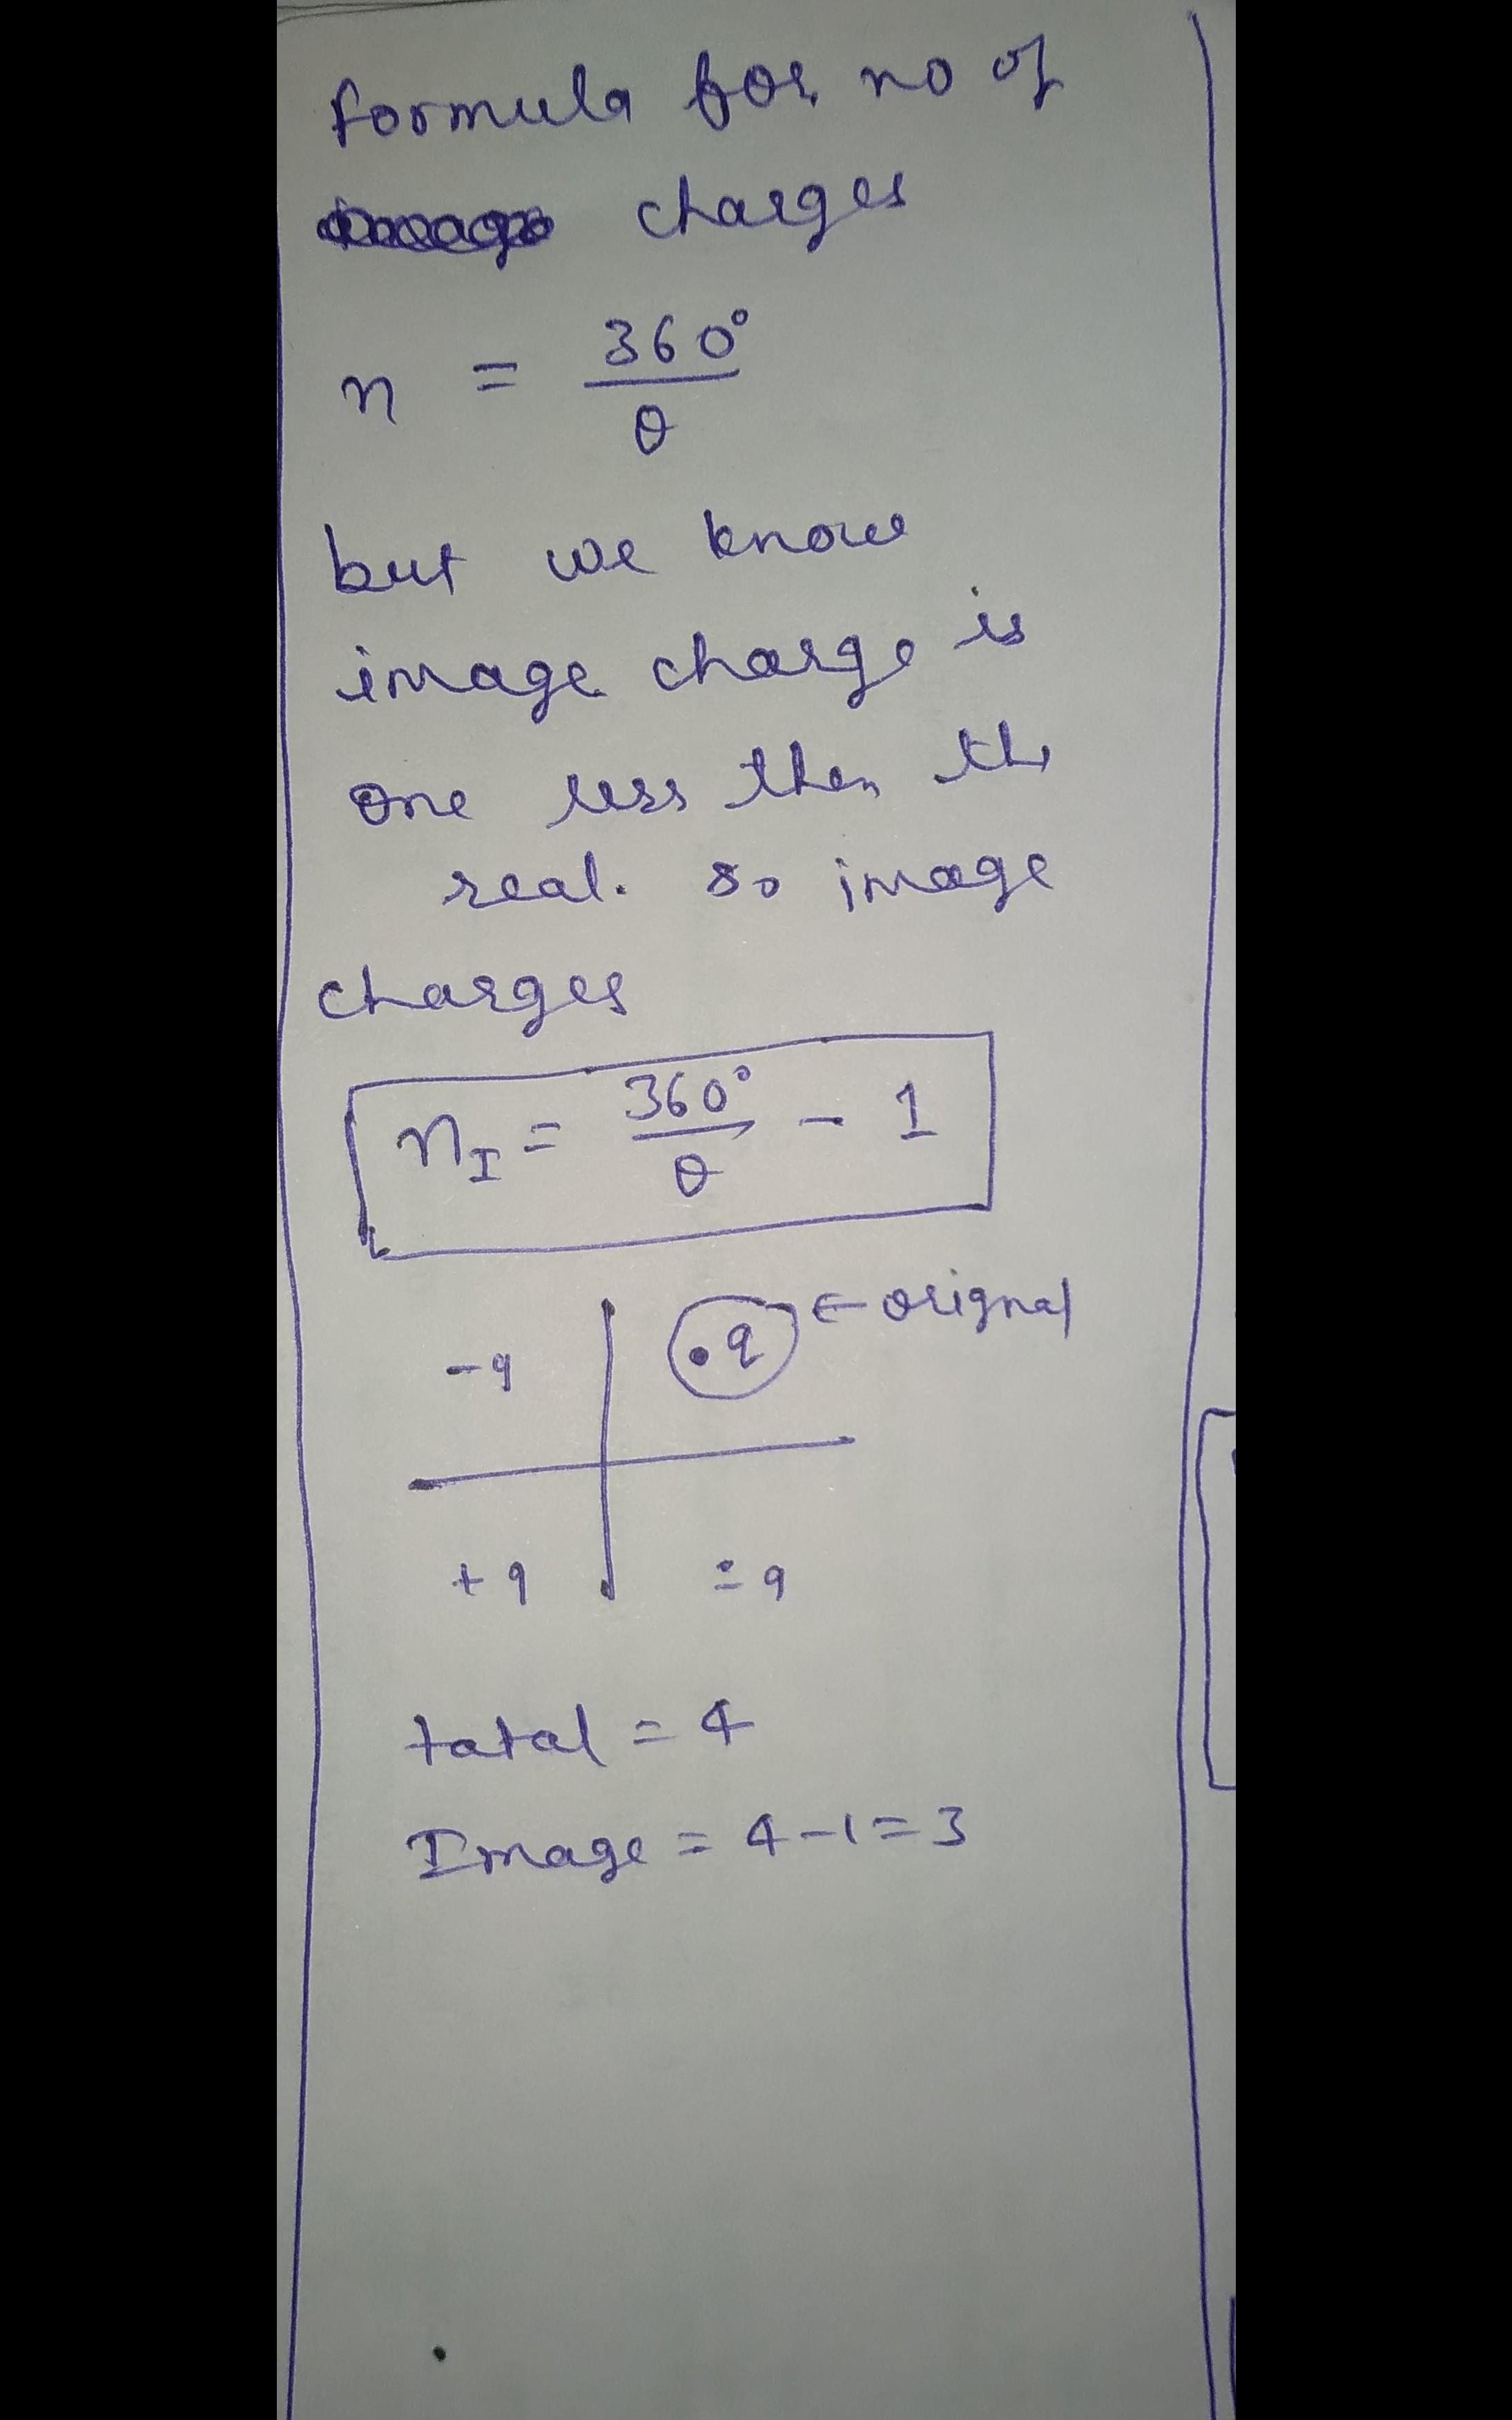 formula for no of
charges
n = 360°/θ
but we know
image charge is
one less then the
real. so image
charges
n_I = 360°/θ - 1
-q .q ← orignal
+q -q
total = 4
Image = 4-1=3